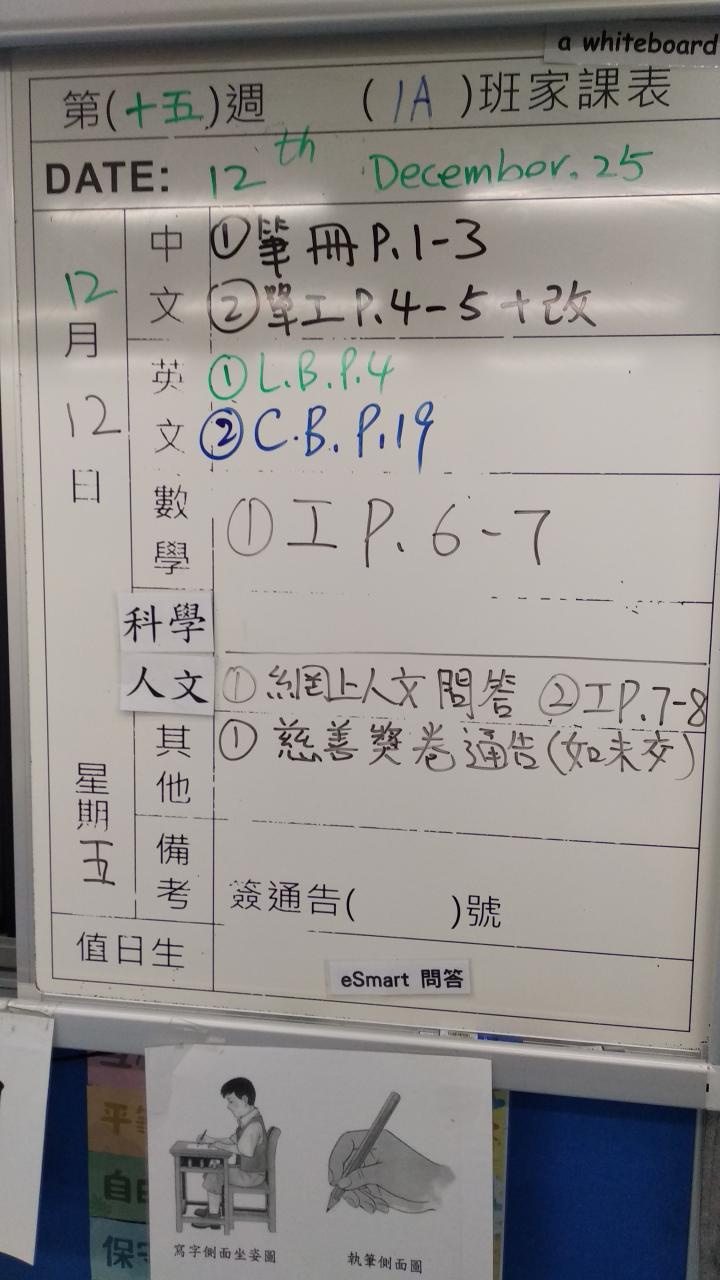 a whiteboard
第(十五)週 (1A)班家課表
DATE: 12th December. 25
12月12日
星期五
中文
①筆冊P.1-3
②單工P.4-5+改
英文
①L.B.P.4
②C.B.P.19
數學
①工P.6-7
科學
人文
①網上人文問答 ②工P.7-8
其他
①慈善獎卷通告(如未交)
備考
簽通告( )號
值日生
eSmart 問答
平
自
保
寫字側面坐姿圖
執筆側面圖